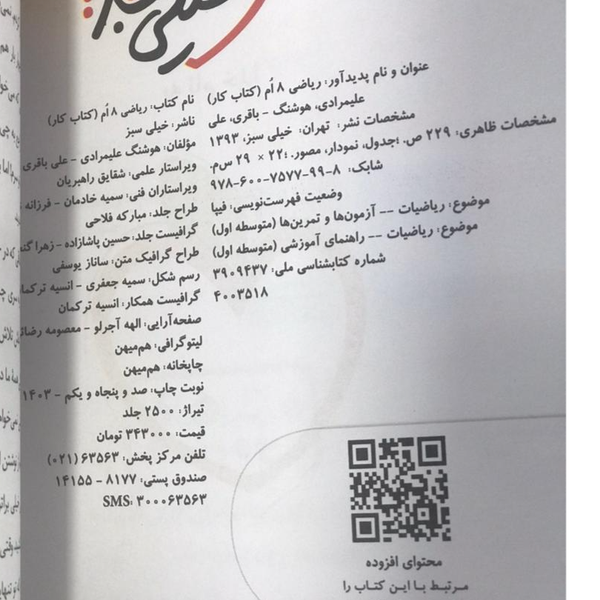 عنوان و نام پدیدآور: ریاضی ۸ اُم (کتاب کار)
علیمرادی، هوشنگ - باقری، علی
مشخصات نشر: تهران: خیلی سبز، ۱۳۹۳
مشخصات ظاهری: ۲۲۹ ص. :جدول، نمودار، مصور. ؛۲۲ × ۲۹ س‌م.
شابک: ۹۷۸-۶۰۰-۷۵۷۷-۹۹-۸
وضعیت فهرست‌نویسی: فیپا
موضوع: ریاضیات -- آزمون‌ها و تمرین‌ها (متوسطه اول)
موضوع: ریاضیات -- راهنمای آموزشی (متوسطه اول)
شماره کتابشناسی ملی: ۳۹۰۹۴۳۷
۴۰۰۳۵۱۸
نام کتاب: ریاضی ۸ اُم (کتاب کار)
ناشر: خیلی سبز
مؤلفان: هوشنگ علیمرادی - علی باقری
ویراستار علمی: شقایق راهبریان
ویراستاران فنی: سمیه خادمان - فرزانه
طراح جلد: مبارکه فلاحی
گرافیست جلد: حسین پاشازاده - زهرا
طراح گرافیک متن: ساناز یوسفی
رسم شکل: سمیه جعفری - انسیه ترکمان
گرافیست همکار: انسیه ترکمان
صفحه‌آرایی: الهه آجرلو - معصومه
لیتوگرافی: هم‌میهن
چاپخانه: هم‌میهن
نوبت چاپ: صد و پنجاه و یکم - ۱۴۰۳
تیراژ: ۲۵۰۰ جلد
قیمت: ۳۴۳۰۰۰ تومان
تلفن مرکز پخش: ۶۳۵۶۳ (۰۲۱)
صندوق پستی: ۸۱۷۷ - ۱۴۱۵۵
SMS: ۳۰۰۰۶۳۵۶۳
محتوای افزوده
مرتبط با این کتاب را